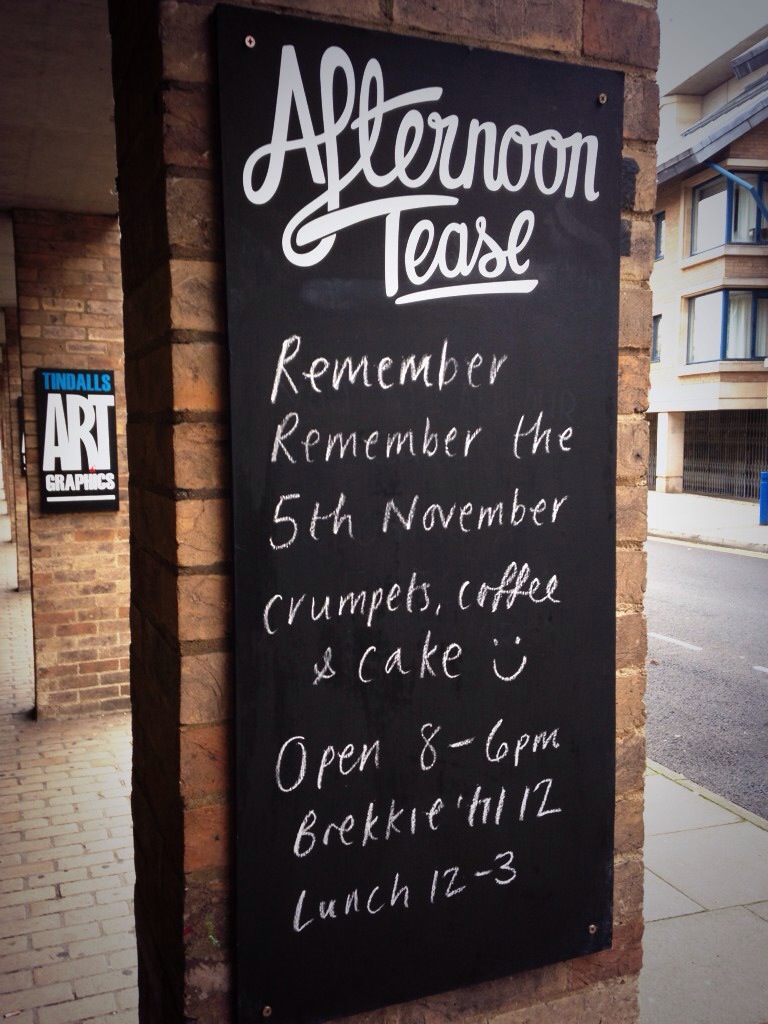 Afternoon
Tease
Remember
Remember the
5th November
crumpets, coffee
& cake Ü
Open 8-6pm
Brekkie 'til 12
Lunch 12-3
TINDALLS
ART
GRAPHICS